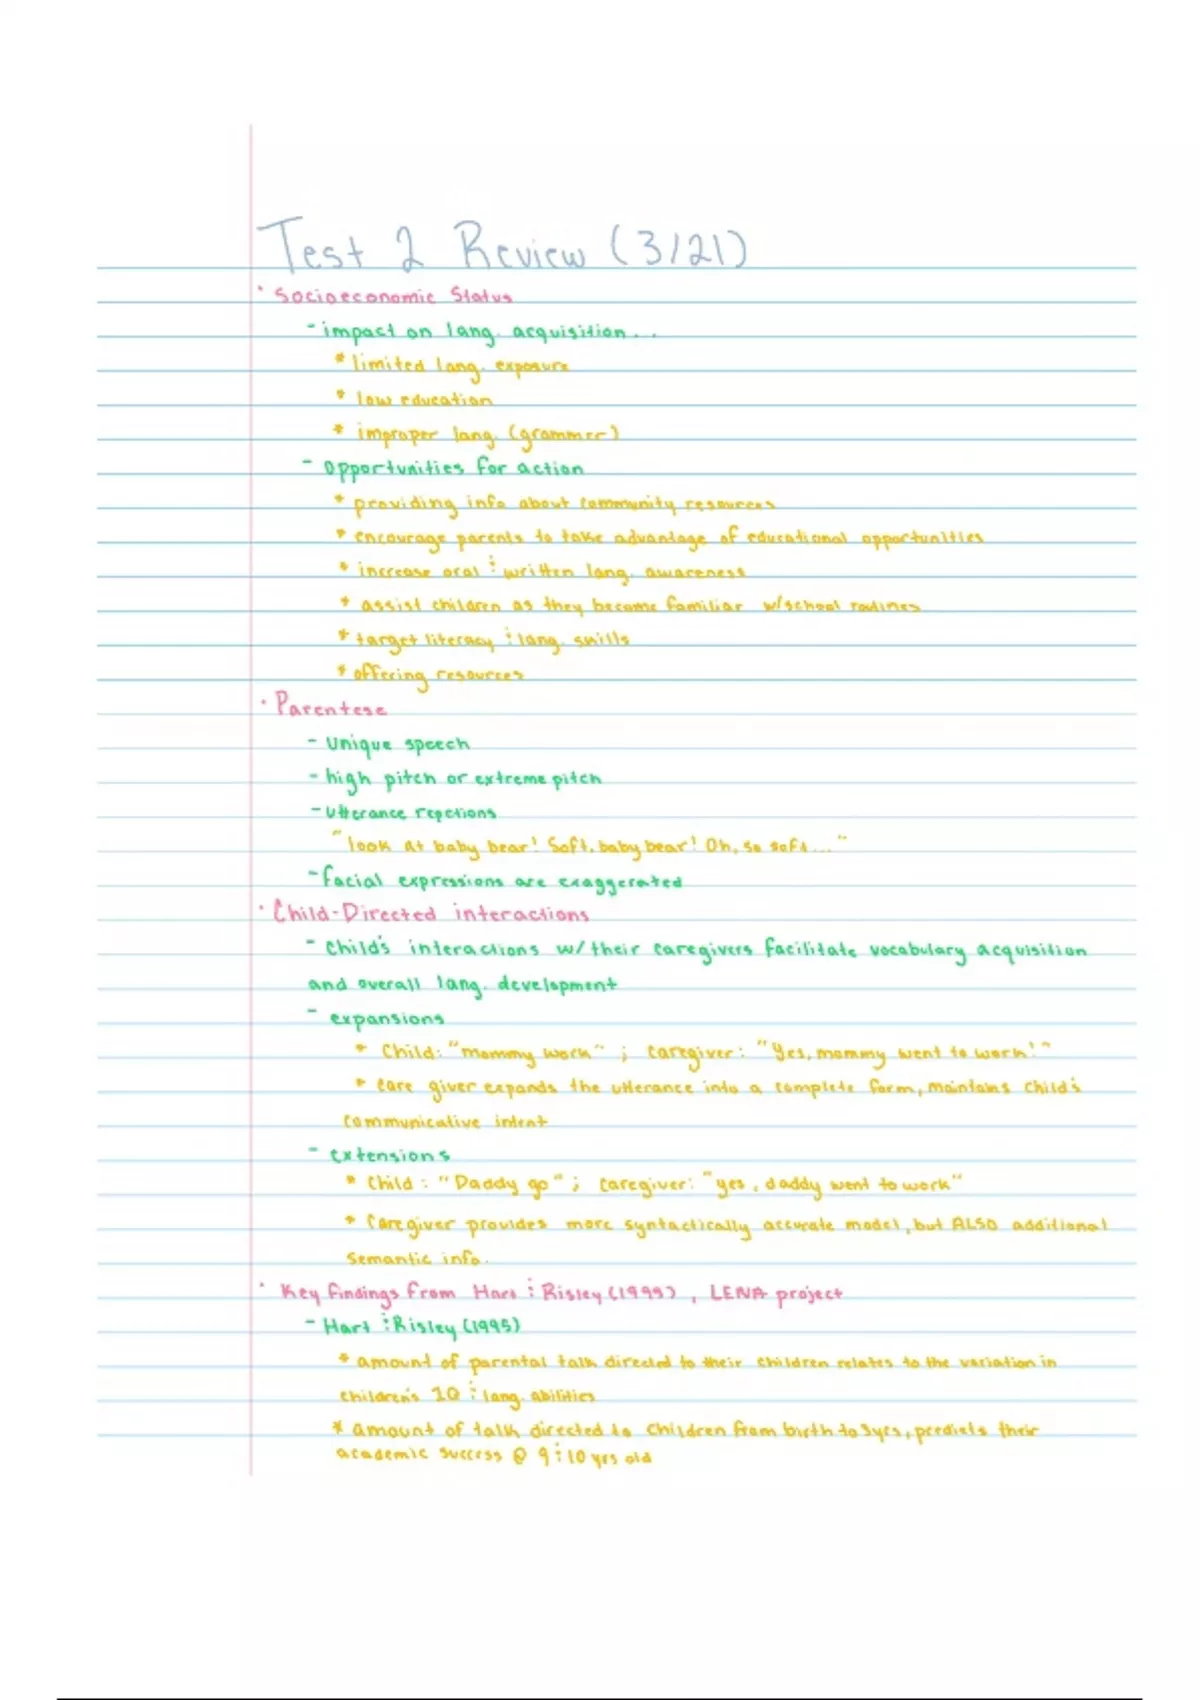 Test 2 Review (3/21)
· Socioeconomic Status
- impact on lang. acquisition...
* limited lang. exposure
* low education
* improper lang. (grammer)
- opportunities for action
* providing info about community resources
* encourage parents to take advantage of educational opportunities
* increase oral & written lang. awareness
* assist children as they become familiar w/school routines
* target literacy & lang. skills
* offering resources
· Parentese
- Unique speech
- high pitch or extreme pitch
- utterance repetions
"look at baby bear! Soft, baby bear! Oh, so soft..."
- facial expressions are exaggerated
· Child-Directed interactions
- Child's interactions w/ their caregivers facilitate vocabulary acquisition
and overall lang. development
- expansions
* Child: "mommy work" ; caregiver: "Yes, mommy went to work!"
* care giver expands the utterance into a complete form, maintains child's
communicative intent
- extensions
* Child: "Daddy go" ; caregiver: "yes, daddy went to work"
* Caregiver provides more syntactically accurate model, but ALSO additional
semantic info.
· Key findings from Hart & Risley (1995), LENA project
- Hart & Risley (1995)
* amount of parental talk directed to their children relates to the variation in
children's IQ & lang. abilities
* amount of talk directed to children from birth to 3yrs, predicts their
academic success @ 9 & 10 yrs old